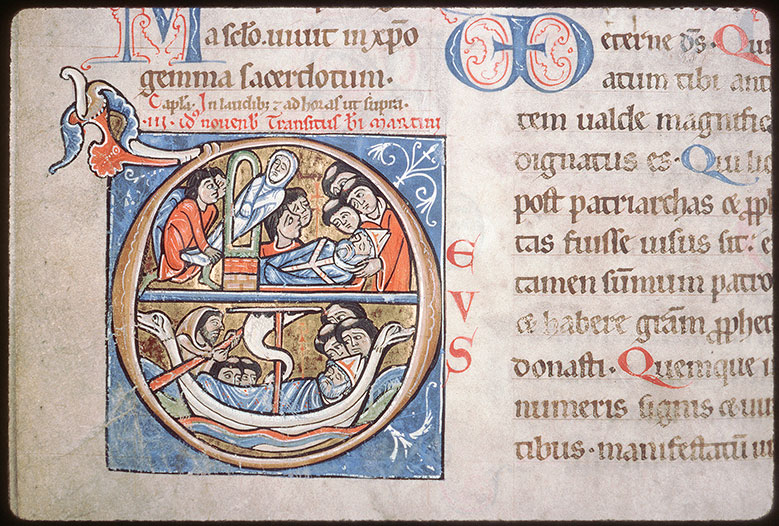 Ma selo. uiuit in xpo
gemma sacerdotum.
Capla. In laudib; & ad horas ut supra.
.III. id' nouenb' Transitus bi martini
EUS
eterne ds. Qui
atum tibi anti
tem ualde magnific
dignatus es. Qui
post patriarchas &
tas fuisse uisus sit. e
tamen summum patro
& habere gram
donasti. Quemque
numeris signis & uir
tibus. manifestatum